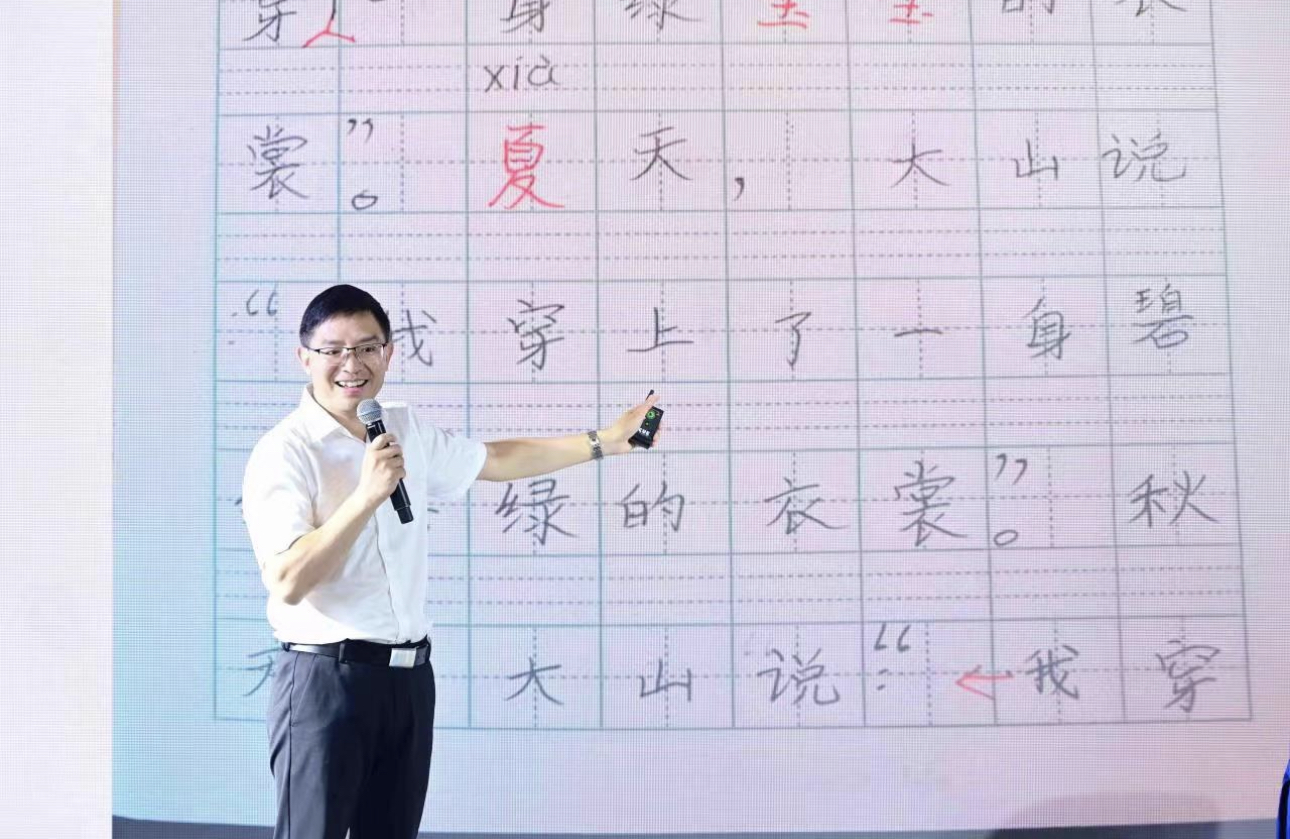 身绿的衣
xià
裳”。夏天，大山说
：“我穿上了一身碧
绿的衣裳”。秋
大山说：“我穿